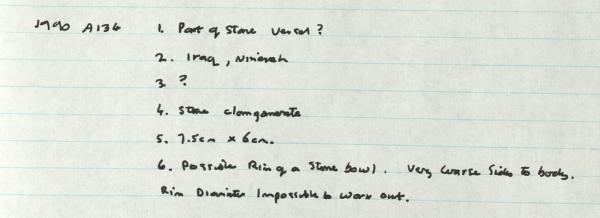 1990 A134 1. Part of Stone Vessel ?
2. Iraq, Nineveh
3. ?
4. Stone
5. 7.5cm x 6cm.
6. Possible Rim of a Stone bowl. Very Coarse Sides to body.
Rim Diameter Impossible to work out.